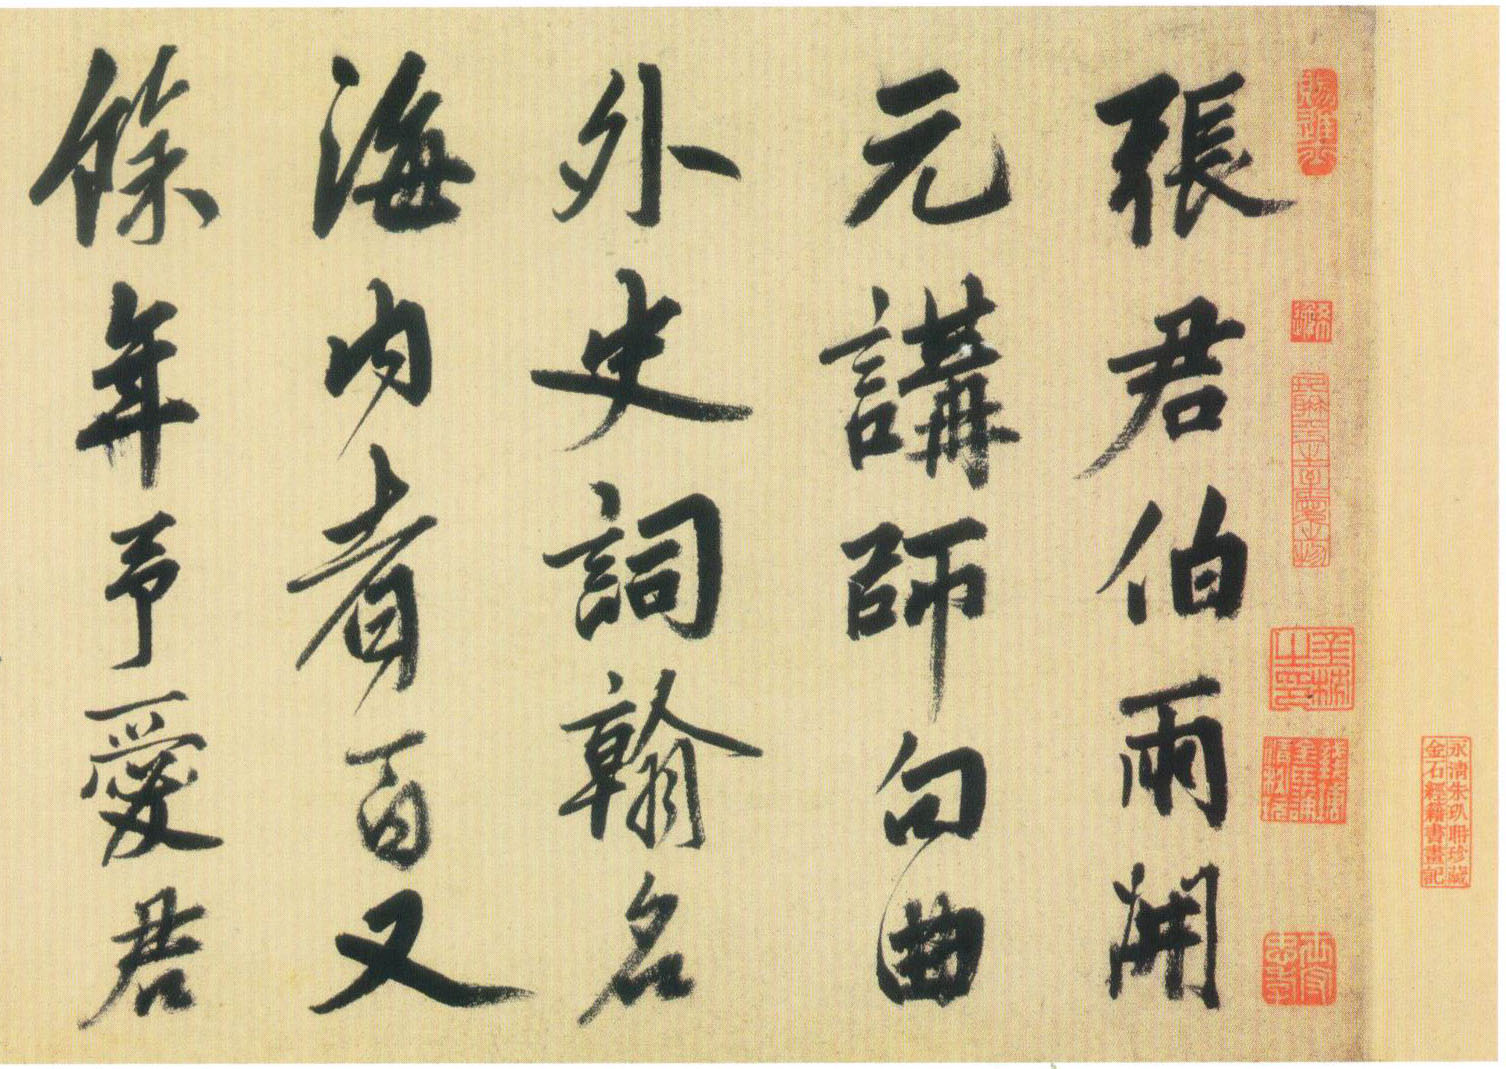 永清朱玖聃珍藏
金石經籍書畫記
張君伯雨開
元講師句曲
外史詞翰名
海內者百又
餘年予愛君